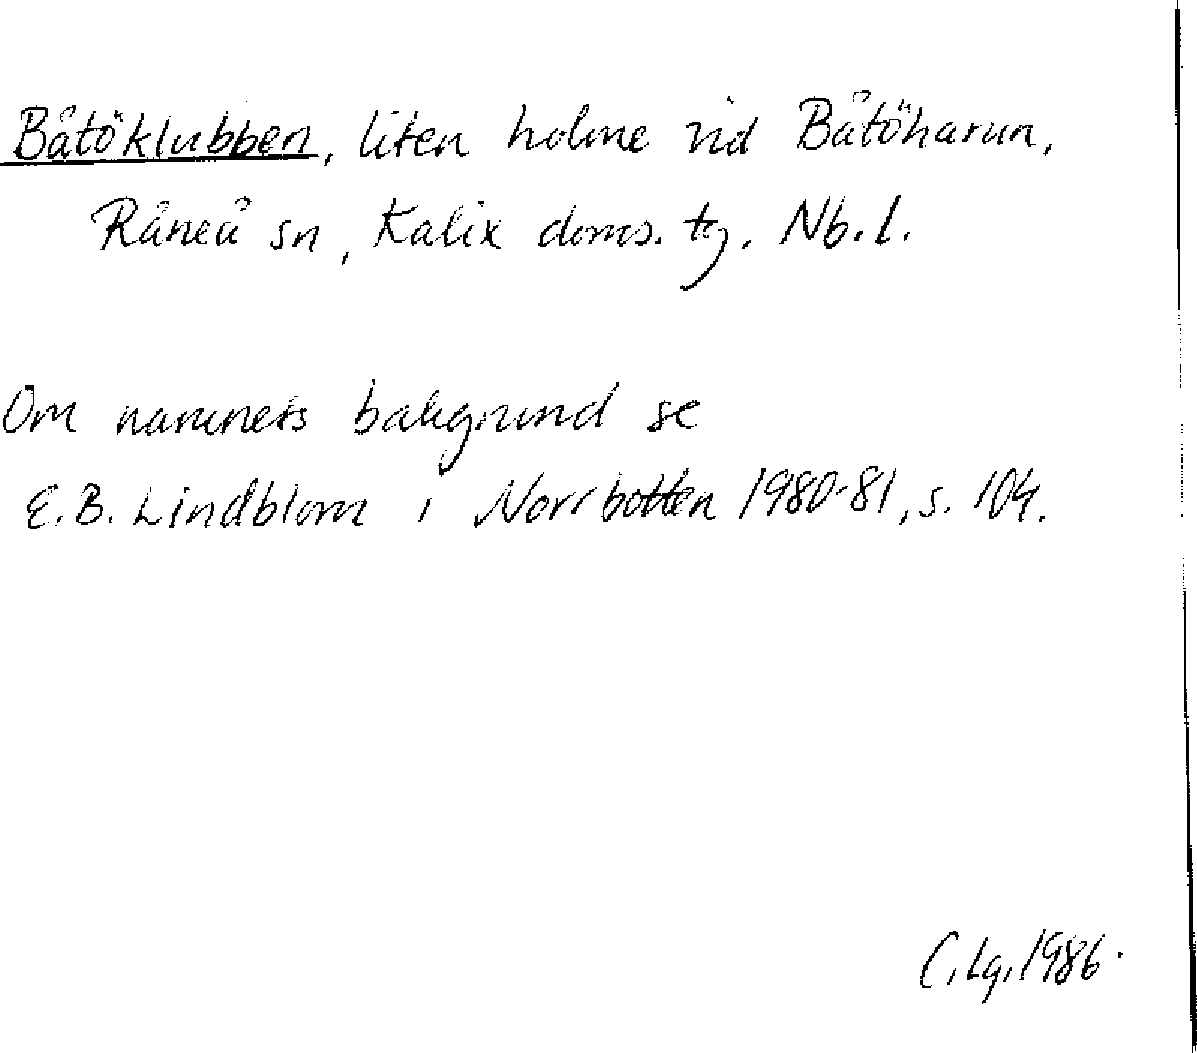 Båtöklubben, liten holme vid Båtöharun,
Råneå sn, Kalix doms. tg. Nb. l.
Om namnets bakgrund se
E.B. Lindblom i Norrbotten 1980-81, s. 104.
C. Lg. 1986.